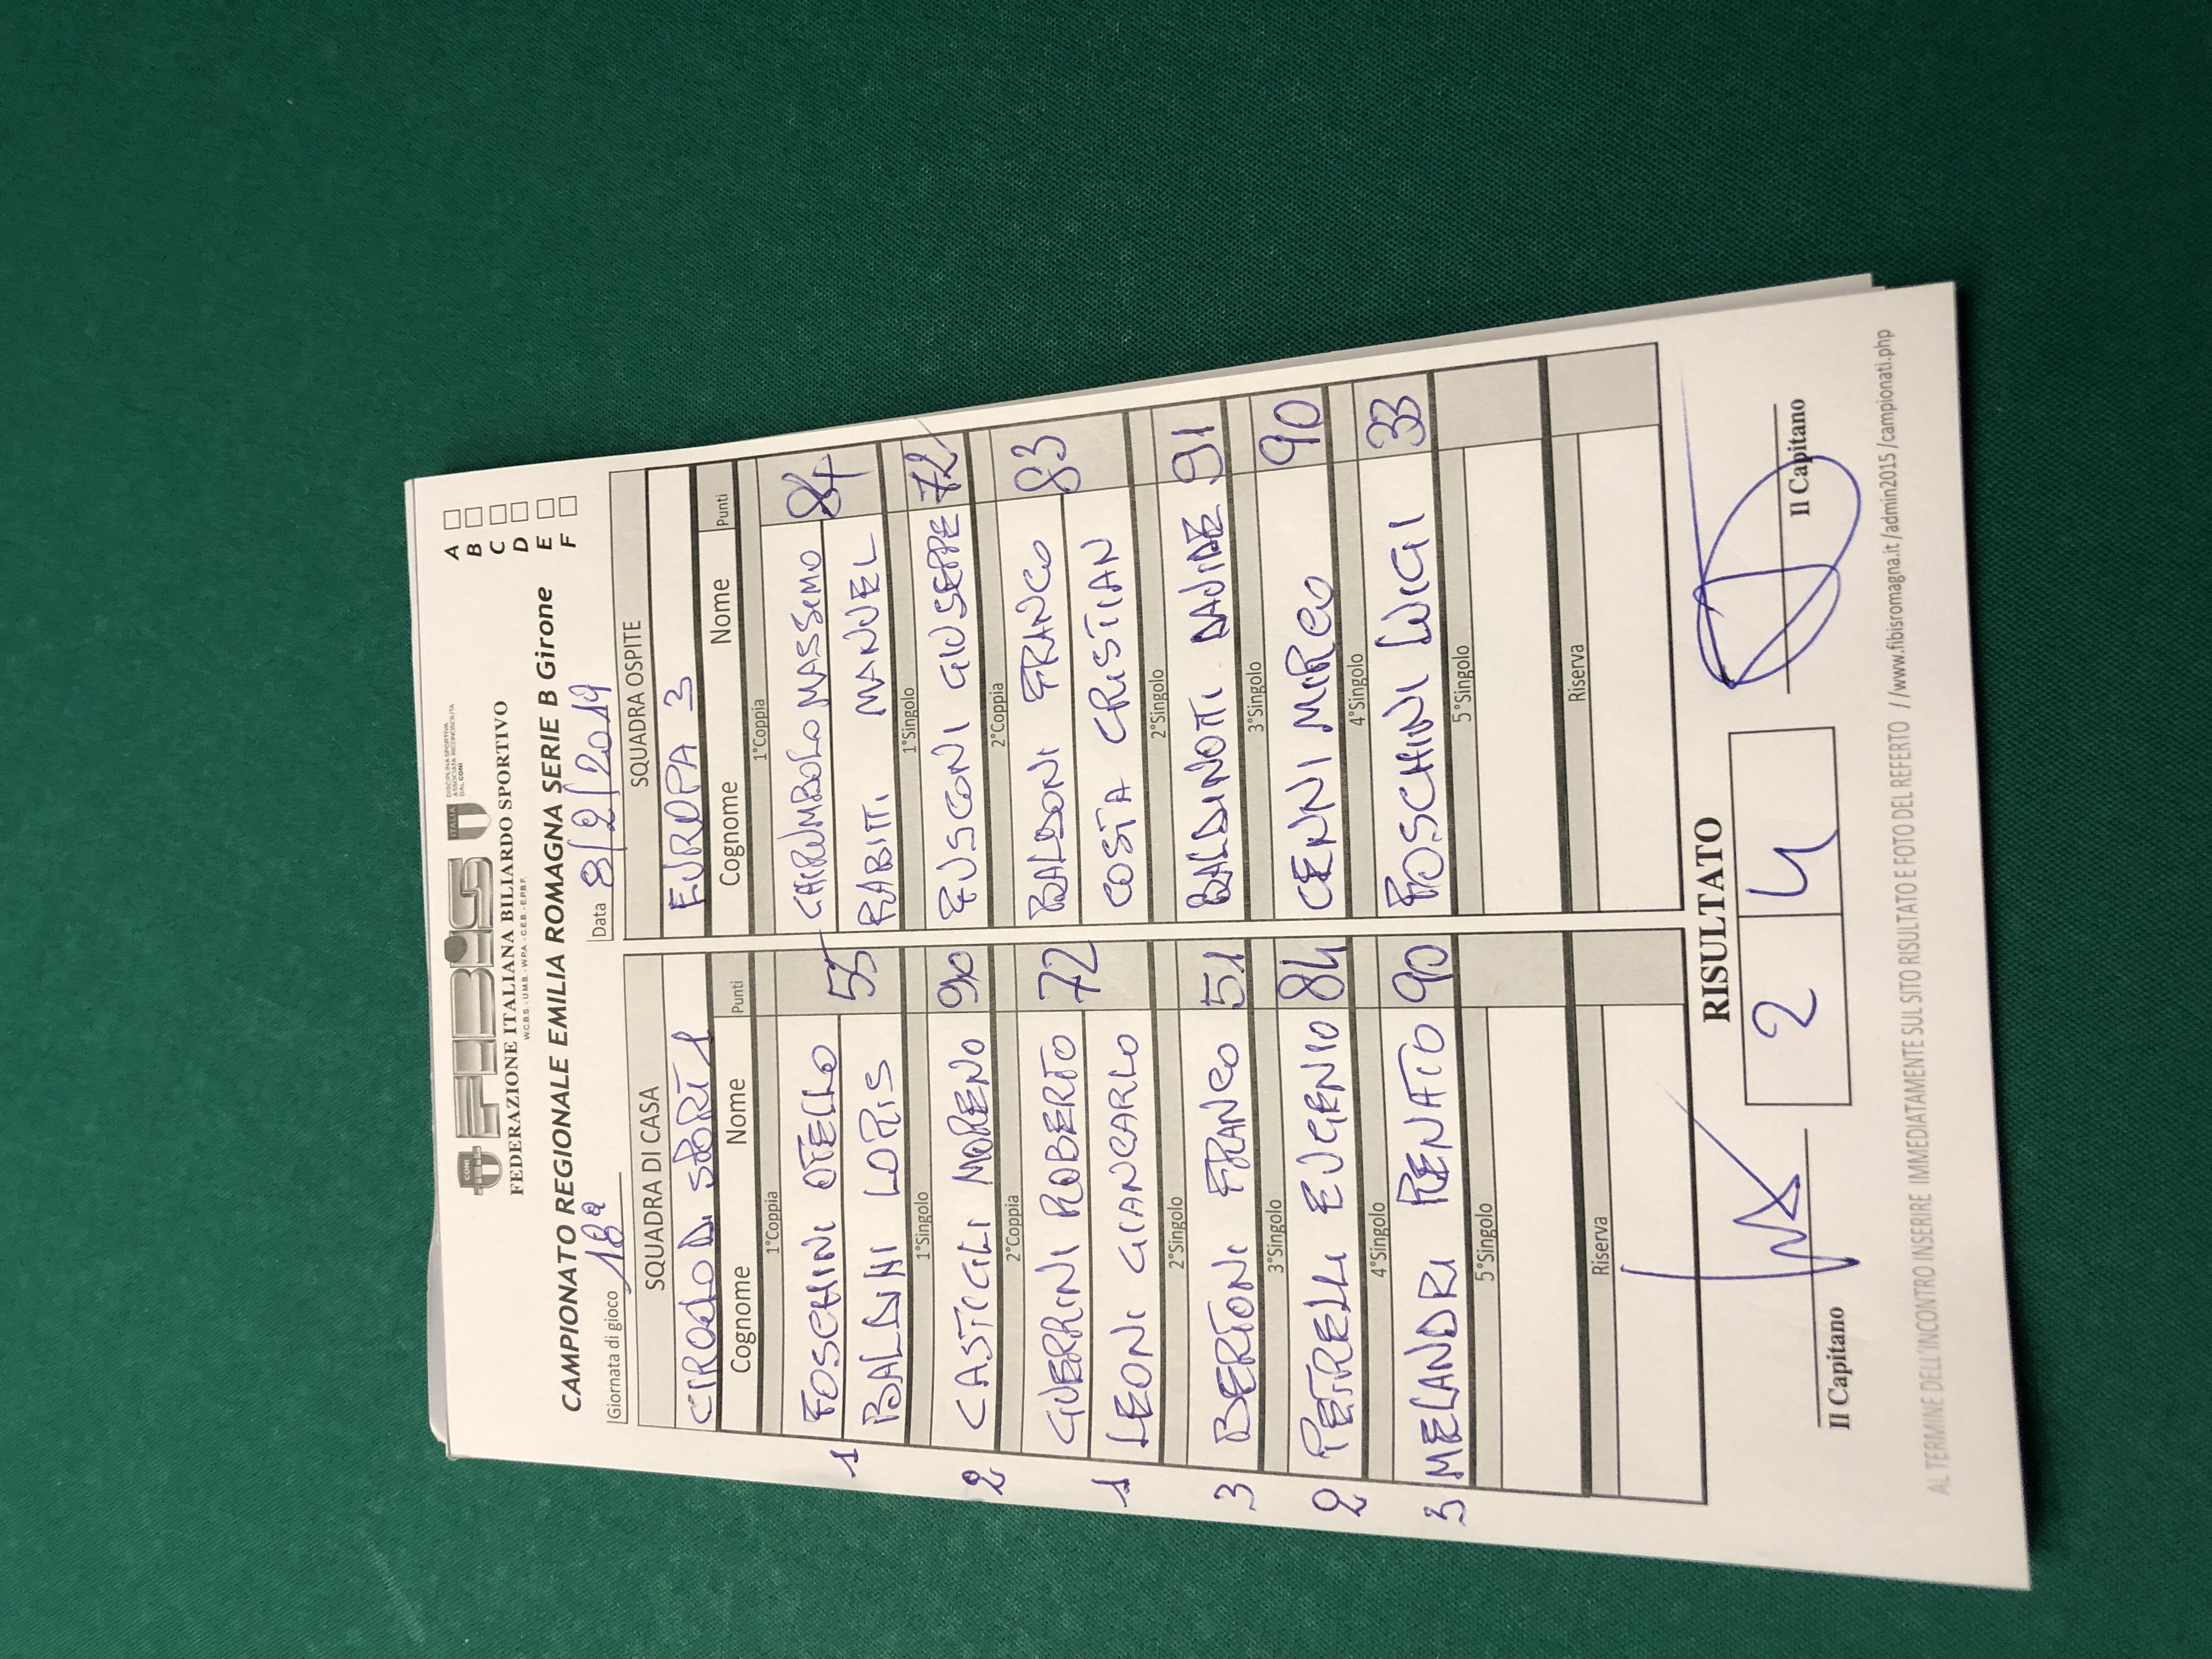 CONI
FEBIS
ITALIA
DISCIPLINA SPORTIVA
ASSOCIATA RICONOSCIUTA
DAL CONI
FEDERAZIONE ITALIANA BILIARDO SPORTIVO
W.C.B.S. - U.M.B. - W.P.A. - C.E.B. - E.P.B.F.
CAMPIONATO REGIONALE EMILIA ROMAGNA SERIE B Girone
A
B
C
D
E
F
Giornata di gioco 18ª Data 8/2/2019
SQUADRA DI CASA SQUADRA OSPITE
EUROPA 3
Cognome Nome Punti Cognome Nome Punti
1°Coppia 1°Coppia
1 FOSCHINI OTELLO 55 MASSIMO 84
BALDINI LORIS RABITTI MANUEL
1°Singolo 1°Singolo
2 CASTIGLI MORENO 90 FUSCONI GIUSEPPE 72
2°Coppia 2°Coppia
GUERRINI ROBERTO 72 BALDONI FRANCO 83
1 LEONI GIANCARLO COSTA CRISTIAN
2°Singolo 2°Singolo
3 BERTONI FRANCO 51 BALDINOTTI DAVIDE 91
3°Singolo 3°Singolo
2 PETRELLI EUGENIO 84 CENNI MIRCO 90
4°Singolo 4°Singolo
3 MELANDRI RENATO 90 FOSCHINI LUIGI 33
5°Singolo 5°Singolo
Riserva Riserva
RISULTATO
2 4
Il Capitano Il Capitano
AL TERMINE DELL'INCONTRO INSERIRE IMMEDIATAMENTE SUL SITO RISULTATO E FOTO DEL REFERTO //www.fibisromagna.it/admin2015/campionati.php